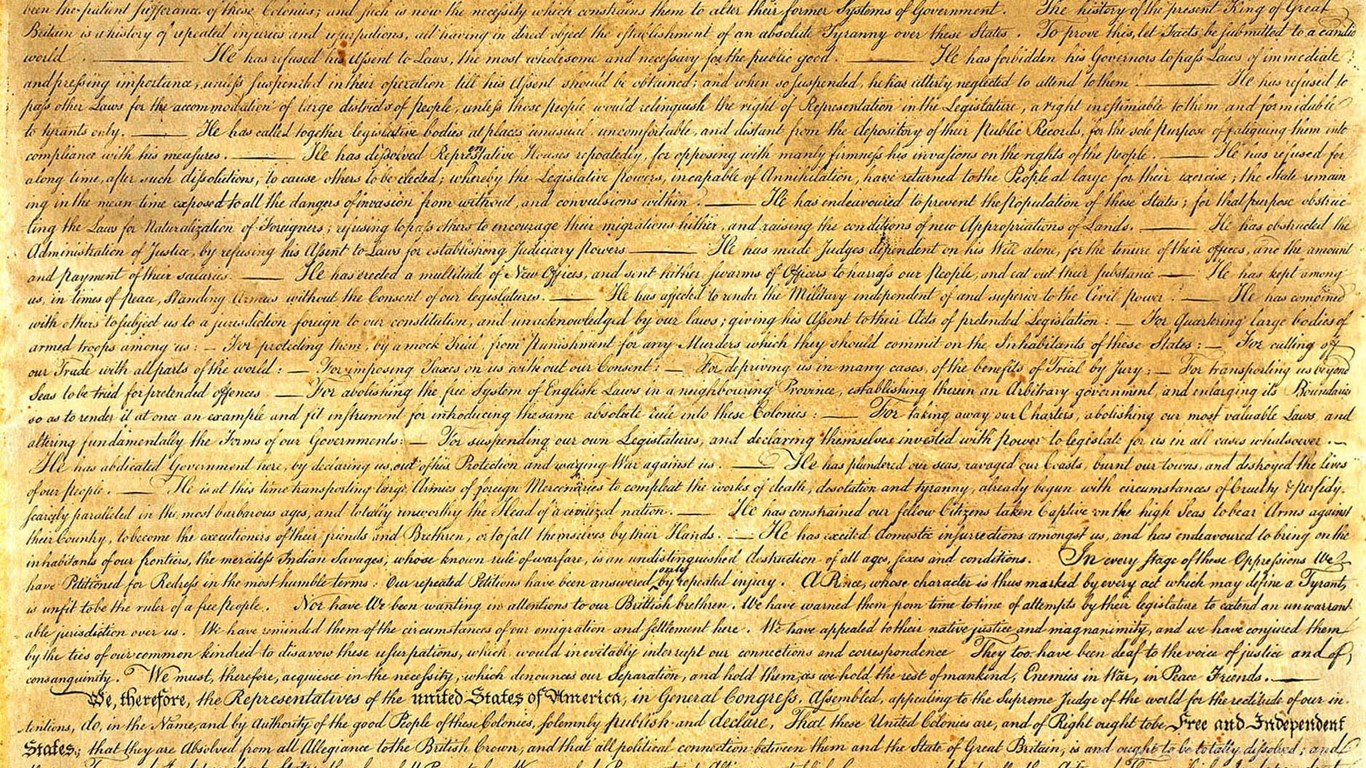 been the patient sufferance of these Colonies; and such is now the necessity which constrains them to alter their former Systems of Government. The history of the present King of Great
Britain is a history of repeated injuries and usurpations, all having in direct object the establishment of an absolute Tyranny over these States. To prove this, let Facts be submitted to a candid
world. ——— He has refused his Assent to Laws, the most wholesome and necessary for the public good. ——— He has forbidden his Governors to pass Laws of immediate
and pressing importance, unless suspended in their operation till his Assent should be obtained; and when so suspended, he has utterly neglected to attend to them ——— He has refused to
pass other Laws for the accommodation of large districts of people, unless those people would relinquish the right of Representation in the Legislature, a right inestimable to them and formidable
to tyrants only. ——— He has called together legislative bodies at places unusual, uncomfortable, and distant from the depository of their public Records, for the sole purpose of fatiguing them into
compliance with his measures. ——— He has dissolved Representative Houses repeatedly, for opposing with manly firmness his invasions on the rights of the people. ——— He has refused for
a long time, after such dissolutions, to cause others to be elected; whereby the Legislative powers, incapable of Annihilation, have returned to the People at large for their exercise; the State remain
ing in the mean time exposed to all the dangers of invasion from without, and convulsions within. ——— He has endeavoured to prevent the population of these States; for that purpose obstruc
ting the Laws for Naturalization of Foreigners; refusing to pass others to encourage their migrations hither, and raising the conditions of new Appropriations of Lands. ——— He has obstructed the
Administration of Justice, by refusing his Assent to Laws for establishing Judiciary powers ——— He has made Judges dependent on his Will alone, for the tenure of their offices, and the amount
and payment of their salaries. ——— He has erected a multitude of New Offices, and sent hither swarms of Officers to harass our People, and eat out their substance — He has kept among
us, in times of peace, Standing Armies without the Consent of our legislatures. ——— He has affected to render the Military independent of and superior to the Civil power. ——— He has combined
with others to subject us to a jurisdiction foreign to our constitution, and unacknowledged by our laws; giving his Assent to their Acts of pretended Legislation: — For Quartering large bodies of
armed troops among us: — For protecting them, by a mock Trial, from Punishment for any Murders which they should commit on the Inhabitants of these States: — For cutting off
our Trade with all parts of the world: — For imposing Taxes on us without our Consent: — For depriving us in many cases, of the benefits of Trial by Jury: — For transporting us beyond
Seas to be tried for pretended offences — For abolishing the free System of English Laws in a neighbouring Province, establishing therein an Arbitrary government, and enlarging its Boundaries
so as to render it at once an example and fit instrument for introducing the same absolute rule into these Colonies: — For taking away our Charters, abolishing our most valuable Laws, and
altering fundamentally the Forms of our Governments: — For suspending our own Legislatures, and declaring themselves invested with power to legislate for us in all cases whatsoever. —
He has abdicated Government here, by declaring us out of his Protection and waging War against us. ——— He has plundered our seas, ravaged our Coasts, burnt our towns, and destroyed the lives
of our people. ——— He is at this time transporting large Armies of foreign Mercenaries to compleat the works of death, desolation and tyranny, already begun with circumstances of Cruelty & perfidy
scarcely paralleled in the most barbarous ages, and totally unworthy the Head of a civilized nation. ——— He has constrained our fellow Citizens taken Captive on the high Seas to bear Arms against
their Country, to become the executioners of their friends and Brethren, or to fall themselves by their Hands. ——— He has excited domestic insurrections amongst us, and has endeavoured to bring on the
inhabitants of our frontiers, the merciless Indian Savages, whose known rule of warfare, is an undistinguished destruction of all ages, sexes and conditions. In every stage of these Oppressions We
have Petitioned for Redress in the most humble terms: Our repeated Petitions have been answered only by repeated injury. A Prince, whose character is thus marked by every act which may define a Tyrant,
is unfit to be the ruler of a free people. Nor have We been wanting in attentions to our Brittish brethren. We have warned them from time to time of attempts by their legislature to extend an unwarrant
able jurisdiction over us. We have reminded them of the circumstances of our emigration and settlement here. We have appealed to their native justice and magnanimity, and we have conjured them
by the ties of our common kindred to disavow these usurpations, which would inevitably interrupt our connections and correspondence They too have been deaf to the voice of justice and of
consanguinity. We must, therefore, acquiesce in the necessity, which denounces our Separation, and hold them, as we hold the rest of mankind, Enemies in War, in Peace Friends. ———
We, therefore, the Representatives of the united States of America, in General Congress, Assembled, appealing to the Supreme Judge of the world for the rectitude of our in
tentions, do, in the Name, and by Authority of the good People of these Colonies, solemnly publish and declare, That these United Colonies are, and of Right ought to be Free and Independent
States; that they are Absolved from all Allegiance to the British Crown, and that all political connection between them and the State of Great Britain, is and ought to be totally dissolved; and